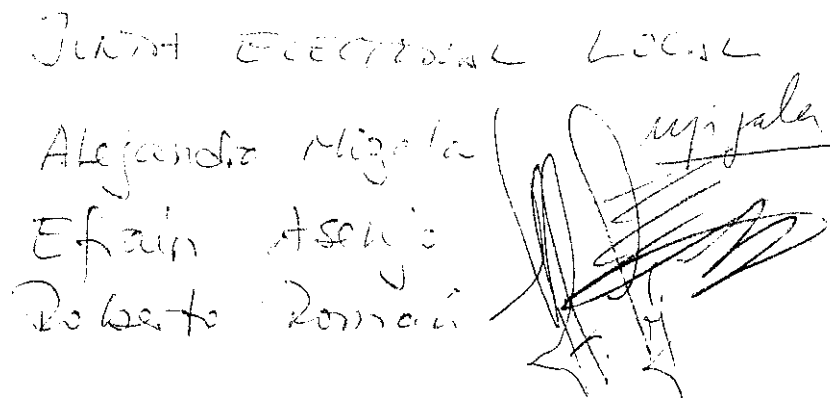 JUNTA ELECTORAL LOCAL
Alejandro Mizala
Efraín Asenjo
Roberto Román